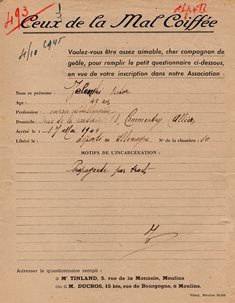 493
Ceux de la Mal Coiffée
4/10 1945
Voulez-vous être assez aimable, cher compagnon de
geôle, pour remplir le petit questionnaire ci-dessous,
en vue de votre inscription dans notre Association :
Nom et prénoms :
Age : 42 ans
Profession :
Domicile : Commentry Allier
Arrêté le : 17 Mai 1941
Libéré le : Déporté en Allemagne N° de la chambre : 10
MOTIFS DE L'INCARCÉRATION :
Propagande par tract
Adresser le questionnaire rempli :
à Mr TINLAND, 5, rue de la Monnaie, Moulins
ou à M. DUCROS, 15 bis, rue de Bourgogne, à Moulins.